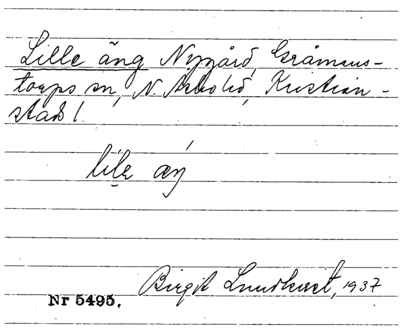 Lille äng Nygård, Gråmans-
torps sn, N. Åsbo hd, Kristian-
stads l.
lilə æŋ́
Birgit Lundkvist, 1937
Nr 5495.